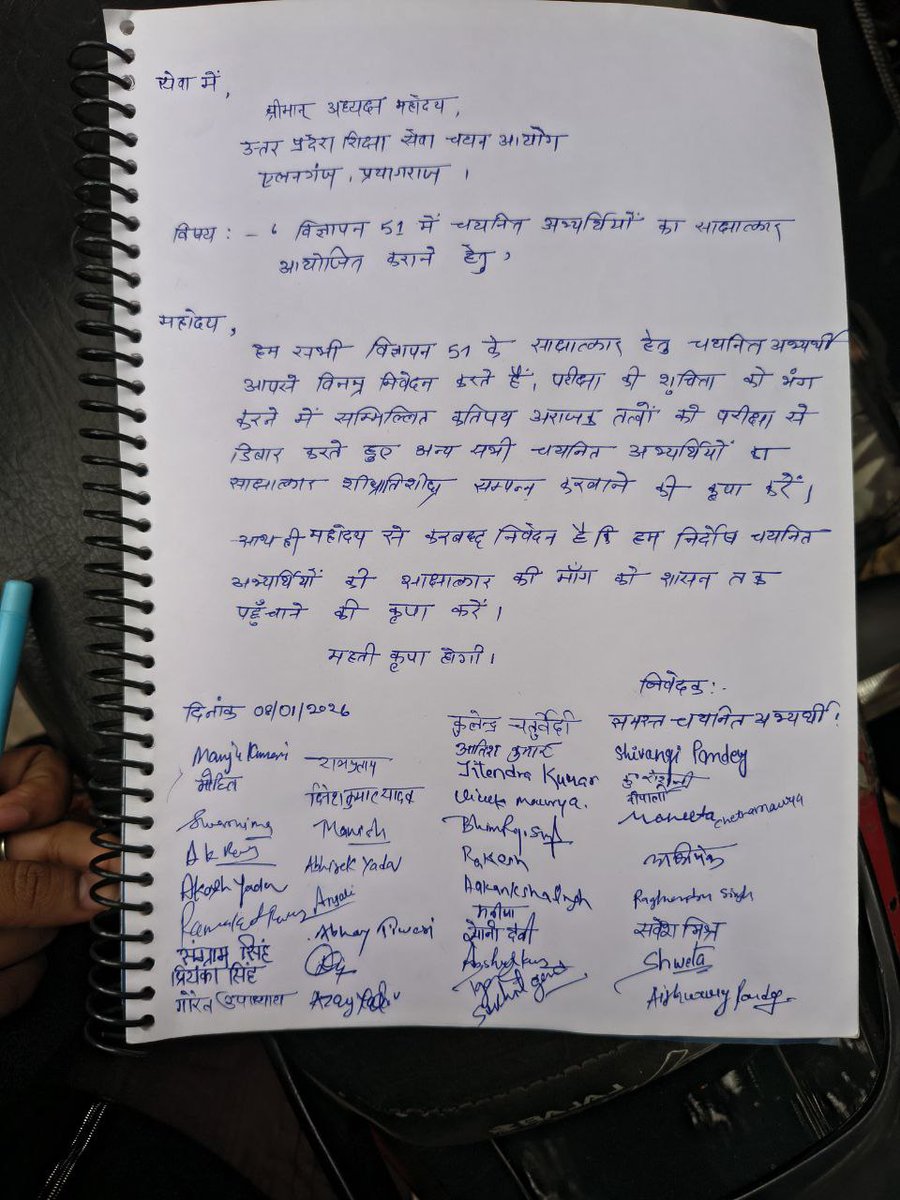 सेवा में,
श्रीमान् अध्यक्ष महोदय,
उत्तर प्रदेश शिक्षा सेवा चयन आयोग
एलनगंज, प्रयागराज ।
विषय :- ‘ विज्ञापन 51 में चयनित अभ्यर्थियों का साक्षात्कार
आयोजित कराने हेतु ’
महोदय,
हम सभी विज्ञापन 51 के साक्षात्कार हेतु चयनित अभ्यर्थी
आपसे विनम्र निवेदन करते हैं, परीक्षा की शुचिता को भंग
करने में सम्मिल्लित कतिपय अराजक तत्वों को परीक्षा से
डिबार करते हुए अन्य सभी चयनित अभ्यर्थियों का
साक्षात्कार शीघ्रातिशीघ्र सम्पन्न करवाने की कृपा करें।
साथ ही महोदय से करबद्ध निवेदन है कि हम निर्दोष चयनित
अभ्यर्थियों की साक्षात्कार की माँग को शासन तक
पहुँचाने की कृपा करें।
महती कृपा होगी।
निवेदक :-
दिनांक 08/01/2026 कुलेन्द्र चतुर्वेदी समस्त चयनित अभ्यर्थी
Manju Kumari रामप्रताप आतिश कुमार Shivangi Pandey
मोहित Jitendra Kumar
दीपाली
Swarnima Manish Maneeta
Abhishek Yadav Rakesh
Akash Yadav Anjali Raghvendra Singh
मनीषा
Abhay Tiwari सोनी देवी सर्वेश मिश्र
संग्राम सिंह
प्रियंका सिंह Shweta
उपाध्याय Aishwarya Pandey